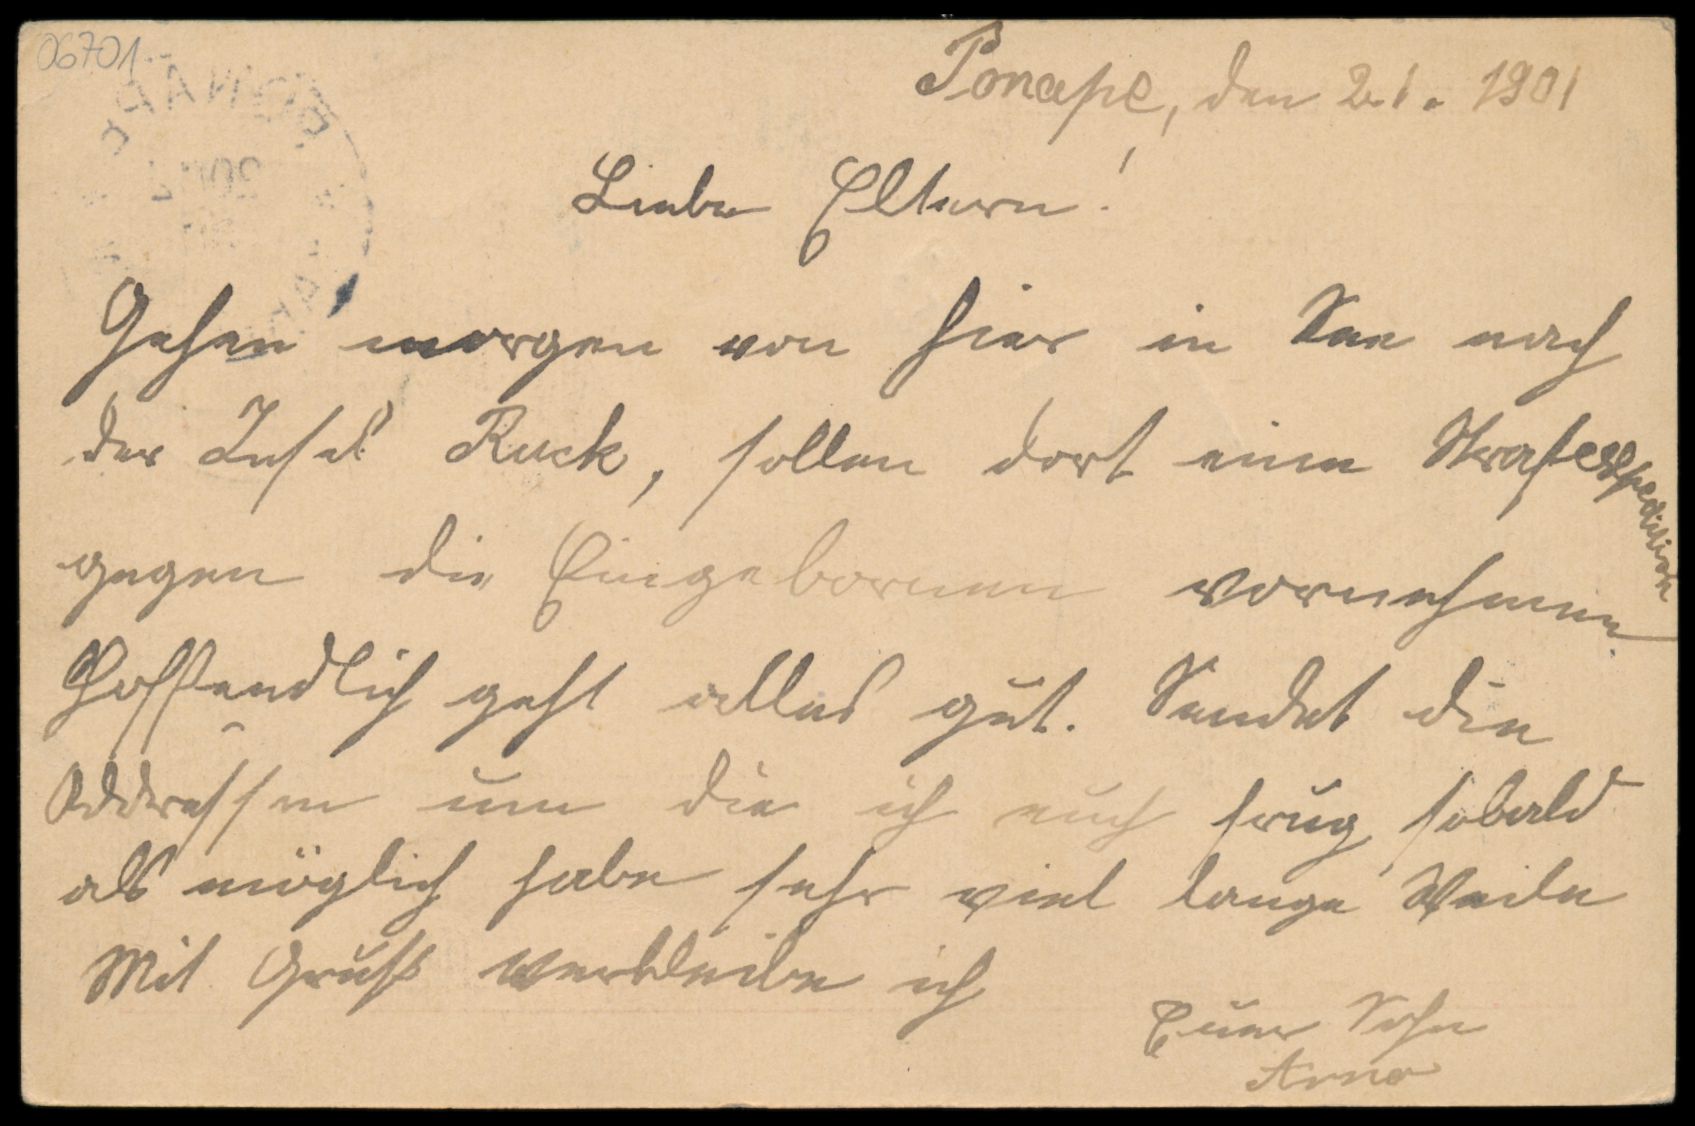 06701
PONAPE
Ponape, den 2.1. 1901
Liebe Eltern!
Gehen morgen von hier in See nach
der Insel Ruck, sollen dort eine Strafexpedition
gegen die Eingebornen vornehmen.
Hoffendlich geht alles gut. Sendet die
Addressen um die ich euch frug, sobald
als möglich habe sehr viel lange Weile
Mit Gruß verbleibe ich
Euer Sohn
Arno